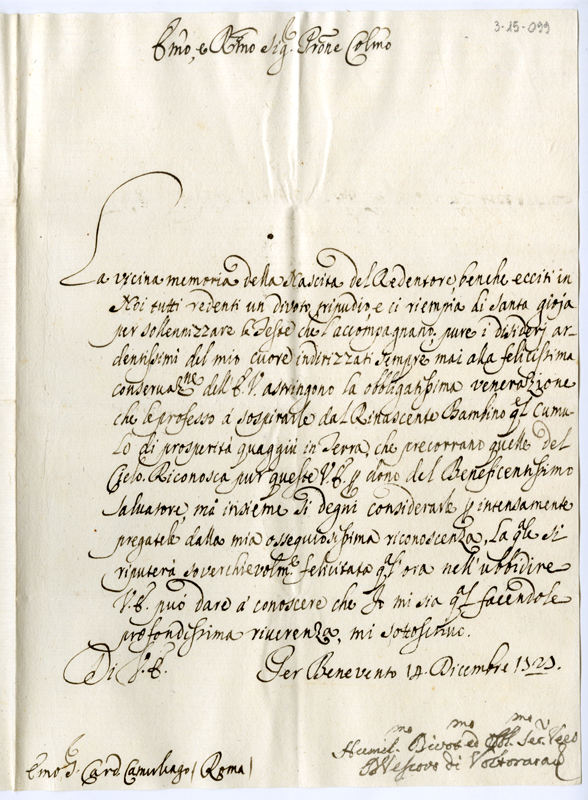 3-25-099
Emo, e Rmo Sig.r Prone Colmo
La vicina memoria della Nascita del Redentore, benche ecciti in
Noi tutti redenti un divoto tripudio, e ci riempia di santa gioja
per solennizzare le Feste che l'accompagnano, pure i desiderj ar-
dentissimi del mio cuore indirizzati sempre mai alla felicissima
conservaz.ne dell'E.V. astringono la obbligatissima venerazione
che le professo à sospirarle dal Rinascente Bambino q.l cumu-
lo di prosperità quaggiù in Terra, che precorrano quelle del
Cielo. Riconosca pur queste V.E. p dono del Beneficentissimo
Salvatore, mà insieme si degni considerarle p intensamente
pregatele dalla mia ossequiosissima riconoscenza, la q.le si
riputerà soverchievolm.te felicitata q.l'ora nell'ubbidire
V.E. può dare à conoscere che Io mi sia q.l facendole
profondissima riverenza, mi sottoscrivo.
Di V.E. Per Benevento 14 Dicembre 1723.
Humil.mo Divot.mo ed Obbl.mo Ser.
Vescovo di
Emo S.r Card Camerlingo (Roma)